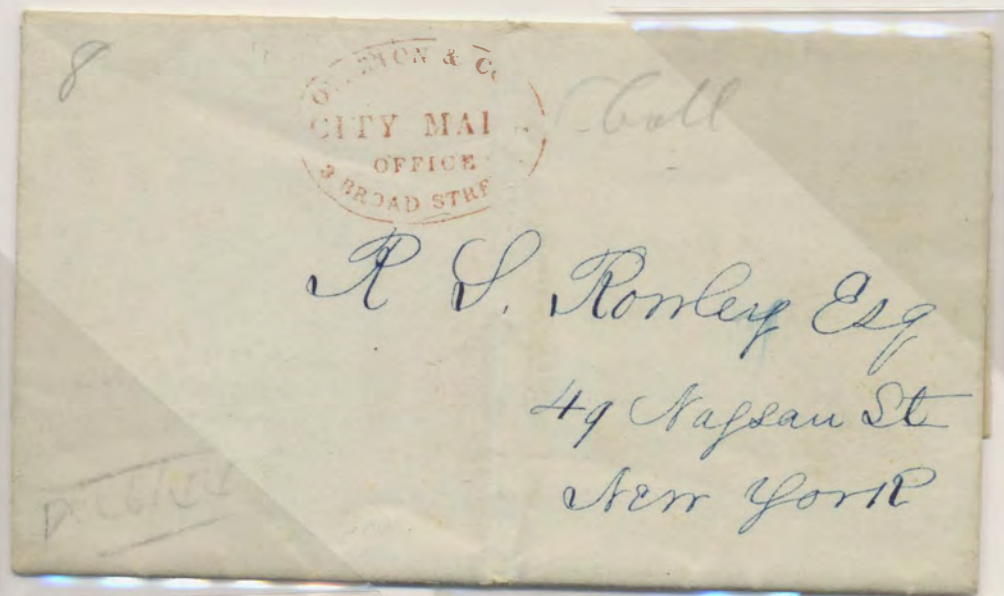 8
& Co
CITY MAI
OFFICE
3 BROAD STRE
R S. Rowley Esq
49 Nassau St
New York